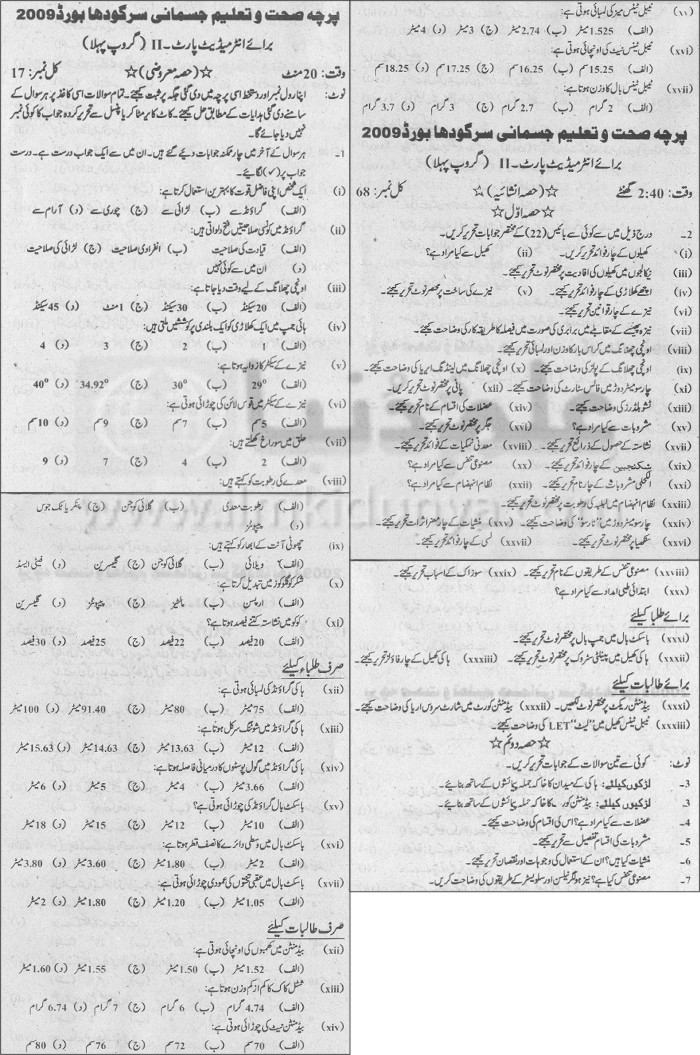 پرچہ صحت و تعلیم جسمانی سرگودھا بورڈ 2009
برائے انٹرمیڈیٹ پارٹ۔ II (گروپ پہلا)
وقت: 20 منٹ ☆(حصہ معروضی)☆ کل نمبر: 17
نوٹ: اپنا رول نمبر اور دستخط اسی پرچہ میں دی گئی جگہ پر ثبت کیجئے۔ تمام سوالات اسی کاغذ پر ہر سوال کے
سامنے دی گئی ہدایات کے مطابق حل کیجئے۔ کاٹ کا برمٹا کر یا پنسل سے تحریر کردہ جواب کا کوئی نمبر
نہیں دیا جائے گا۔
1۔ ہر سوال کے آخر میں چار ممکنہ جوابات دیے گئے ہیں۔ ان میں سے ایک جواب درست ہے۔ درست
جواب پر (✓) لگائیے۔
(i) ایک شخص اپنی فاضل قوت کا بہترین استعمال کرتا ہے:
(الف) گراؤنڈ سے (ب) لڑائی سے (ج) چوری سے (د) آرام سے
(ii) گراؤنڈ میں کونسی صلاحیتیں فتح دلواتی ہیں:
(الف) قیادت کی صلاحیت (ب) انفرادی صلاحیت (ج) لڑائی کی صلاحیت
(د) ان میں سے کوئی نہیں
(iii) اونچی چھلانگ کے لیے وقت دیا جاتا ہے:
(الف) 20 سیکنڈ (ب) 30 سیکنڈ (ج) 1 منٹ (د) 45 سیکنڈ
(iv) ہائی جمپ میں ایک کھلاڑی کو ایک بلندی پر کوششیں ملتی ہیں:
(الف) 1 (ب) 2 (ج) 3 (د) 4
(v) نیزے کے سیکٹر کا زاویہ ہوتا ہے:
(الف) 29° (ب) 30° (ج) 34.92° (د) 40°
(vi) نیزے کے سیکٹر میں قوس لائن کی چوڑائی ہوتی ہے:
(الف) 5 سم (ب) 7 سم (ج) 9 سم (د) 10 سم
(vii) حلق میں سوراخ کھلتے ہیں:
(الف) 2 (ب) 4 (ج) 7 (د) 9
(viii) معدے کی رطوبت کو کہتے ہیں:
(الف) رطوبت معدی (ب) گلائی کوجن (ج) پنکریاٹک جوس
(د) پیپٹونز
(ix) چھوٹی آنت کے ابھار کو کہتے ہیں:
(الف) ویلائی (ب) گلائی کوجن (ج) گلیسرین (د) فیٹی ایسڈ
(x) شکر کو گلوکوز میں تبدیل کرتا ہے:
(الف) اریپسن (ب) مالٹیز (ج) پیپٹونز (د) گلیسرین
(xi) کوکو میں نشاستہ کتنے فیصد ہوتا ہے؟
(الف) 20 فیصد (ب) 22 فیصد (ج) 25 فیصد (د) 30 فیصد
صرف طلباء کیلئے
(xii) ہاکی گراؤنڈ کی لمبائی ہوتی ہے:
(الف) 75 میٹر (ب) 80 میٹر (ج) 91.40 میٹر (د) 100 میٹر
(xiii) ہاکی گراؤنڈ میں شوٹنگ سرکل ہوتا ہے:
(الف) 12 میٹر (ب) 13.63 میٹر (ج) 14.63 میٹر (د) 15.63 میٹر
(xiv) ہاکی گراؤنڈ میں گول پوسٹوں کا درمیانی فاصلہ ہوتا ہے:
(الف) 3.66 میٹر (ب) 4 میٹر (ج) 5 میٹر (د) 6 میٹر
(xv) باسکٹ بال گراؤنڈ کی چوڑائی ہوتی ہے؟
(الف) 10 میٹر (ب) 12 میٹر (ج) 15 میٹر (د) 18 میٹر
(xvi) باسکٹ بال میں وسطی دائرے کا نصف قطر ہوتا ہے:
(الف) 2 میٹر (ب) 1.80 میٹر (ج) 3.60 میٹر (د) 3.80 میٹر
(xvii) باسکٹ بال میں عقبی تختوں کی عمودی چوڑائی ہوتی ہے:
(الف) 1.05 میٹر (ب) 1.20 میٹر (ج) 1.80 میٹر (د) 2 میٹر
صرف طالبات کیلئے
(xii) بیڈمنٹن میں کھمبوں کی اونچائی ہوتی ہے:
(الف) 1.52 میٹر (ب) 1.50 میٹر (ج) 1.55 میٹر (د) 1.60 میٹر
(xiii) شٹل کاک کا کم از کم وزن ہوتا ہے:
(الف) 4.74 گرام (ب) 6 گرام (ج) 7 گرام (د) 6.74 گرام
(xiv) بیڈمنٹن نیٹ کی چوڑائی ہوتی ہے:
(الف) 70 سم (ب) 72 سم (ج) 76 سم (د) 80 سم
(xv) ٹیبل ٹینس میز کی لمبائی ہوتی ہے:
(الف) 1.525 میٹر (ب) 2.74 میٹر (ج) 3 میٹر (د) 4 میٹر
(xvi) ٹیبل ٹینس نیٹ کی اونچائی ہوتی ہے:
(الف) 15.25 سم (ب) 16.25 سم (ج) 17.25 سم (د) 18.25 سم
(xvii) ٹیبل ٹینس بال کا وزن ہوتا ہے:
(الف) 2 گرام (ب) 2.7 گرام (ج) 3 گرام (د) 3.7 گرام
پرچہ صحت و تعلیم جسمانی سرگودھا بورڈ 2009
برائے انٹرمیڈیٹ پارٹ۔ II (گروپ پہلا)
وقت: 2:40 گھنٹے ☆(حصہ انشائیہ)☆ کل نمبر: 68
☆حصہ اوّل☆
2۔ درج ذیل میں سے کوئی سے بائیس (22) کے مختصر جوابات تحریر کریں۔
(i) کھیلوں کے چار فوائد تحریر کریں۔ (ii) کھیل سے کیا مراد ہے؟
(iii) کالجوں میں کھیلوں کی افادیت پر مختصر نوٹ تحریر کیجئے۔
(iv) اچھے کھلاڑی کے چار فوائد تحریر کیجئے۔ (v) نیزے کی ساخت پر مختصر نوٹ تحریر کیجئے۔
(vi) نیزے کے چار قوانین تحریر کیجئے۔
(vii) نیزہ پھینکنے کے مقابلے میں برابری کی صورت میں فیصلہ کا طریقہ کار کی وضاحت کیجئے۔
(viii) اونچی چھلانگ میں کراس بار کا وزن اور لمبائی تحریر کیجئے۔
(ix) اونچی چھلانگ کے پولز کی وضاحت کیجئے۔ (x) اونچی چھلانگ میں لینڈنگ ایریا کی وضاحت کیجئے۔
(xi) چار سو میٹر دوڑ میں فالس سٹارٹ کی وضاحت کیجئے۔ (xii) پانی پر مختصر نوٹ تحریر کریں۔
(xiii) نشو بلڈرز کی وضاحت کیجئے۔ (xiv) عضلات کی اقسام کے نام تحریر کیجئے۔
(xv) مشروبات سے کیا مراد ہے؟ (xvi) جگر پر مختصر نوٹ تحریر کیجئے۔
(xvii) نشاستہ کے حصول کے ذرائع تحریر کیجئے۔ (xviii) معدنی نمکیات کے فوائد تحریر کیجئے۔
(xix) سکنجبین کے چار فوائد تحریر کیجئے۔ (xx) مصنوعی تنفس سے کیا مراد ہے؟
(xxi) الکحلی مشروبات کے چار نام تحریر کیجئے۔ (xxii) نظام انہضام سے کیا مراد ہے؟
(xxiii) نظام انہضام میں لبلبہ کی رطوبت پر مختصر نوٹ تحریر کیجئے۔
(xxiv) چار سو میٹر دوڑ میں "ٹارسو" کی وضاحت کیجئے۔ (xxv) منشیات کے چار مضر اثرات تحریر کیجئے۔
(xxvi) سنکھیا پر مختصر نوٹ تحریر کیجئے۔ (xxvii) لسی کے چار فوائد تحریر کیجئے۔
(xxviii) مصنوعی تنفس کے طریقوں کے نام تحریر کیجئے۔ (xxix) سوزاک کے اسباب تحریر کیجئے۔
(xxx) ابتدائی طبی امداد سے کیا مراد ہے؟
برائے طلباء کیلئے
(xxxi) باسکٹ بال میں جمپ بال پر مختصر نوٹ تحریر کیجئے۔
(xxxii) ہاکی کھیل میں پینلٹی سٹروک پر مختصر نوٹ تحریر کیجئے۔ (xxxiii) ہاکی کھیل کے چار فاؤلز تحریر کیجئے۔
برائے طالبات کیلئے
(xxxi) بیڈمنٹن ریکٹ پر مختصر نوٹ لکھیں۔ (xxxii) بیڈمنٹن کورٹ میں شارٹ سروس ایریا کی وضاحت کیجئے۔
(xxxiii) ٹیبل ٹینس کھیل میں "لیٹ" LET کی وضاحت کیجئے۔
☆حصہ دوئم☆
نوٹ: کوئی سے تین سوالات کے جوابات تحریر کریں۔
3۔ لڑکوں کیلئے: ہاکی کے میدان کا خاکہ جملہ پیمائشوں کے ساتھ بنائیے۔
3۔ لڑکیوں کیلئے: بیڈمنٹن کورٹ کا خاکہ جملہ پیمائشوں کے ساتھ بنائیے۔
4۔ عضلات سے کیا مراد ہے؟ اس کی اقسام کی وضاحت کیجئے۔
5۔ مشروبات کی اقسام تفصیل سے تحریر کیجئے۔
6۔ منشیات کیا ہیں؟ ان کے استعمال کی وجوہات اور نقصان تحریر کیجئے۔
7۔ مصنوعی تنفس کیا ہے؟ نیز ہولگر نیلسن اور سلویسٹر کے طریقوں کی وضاحت کریں۔